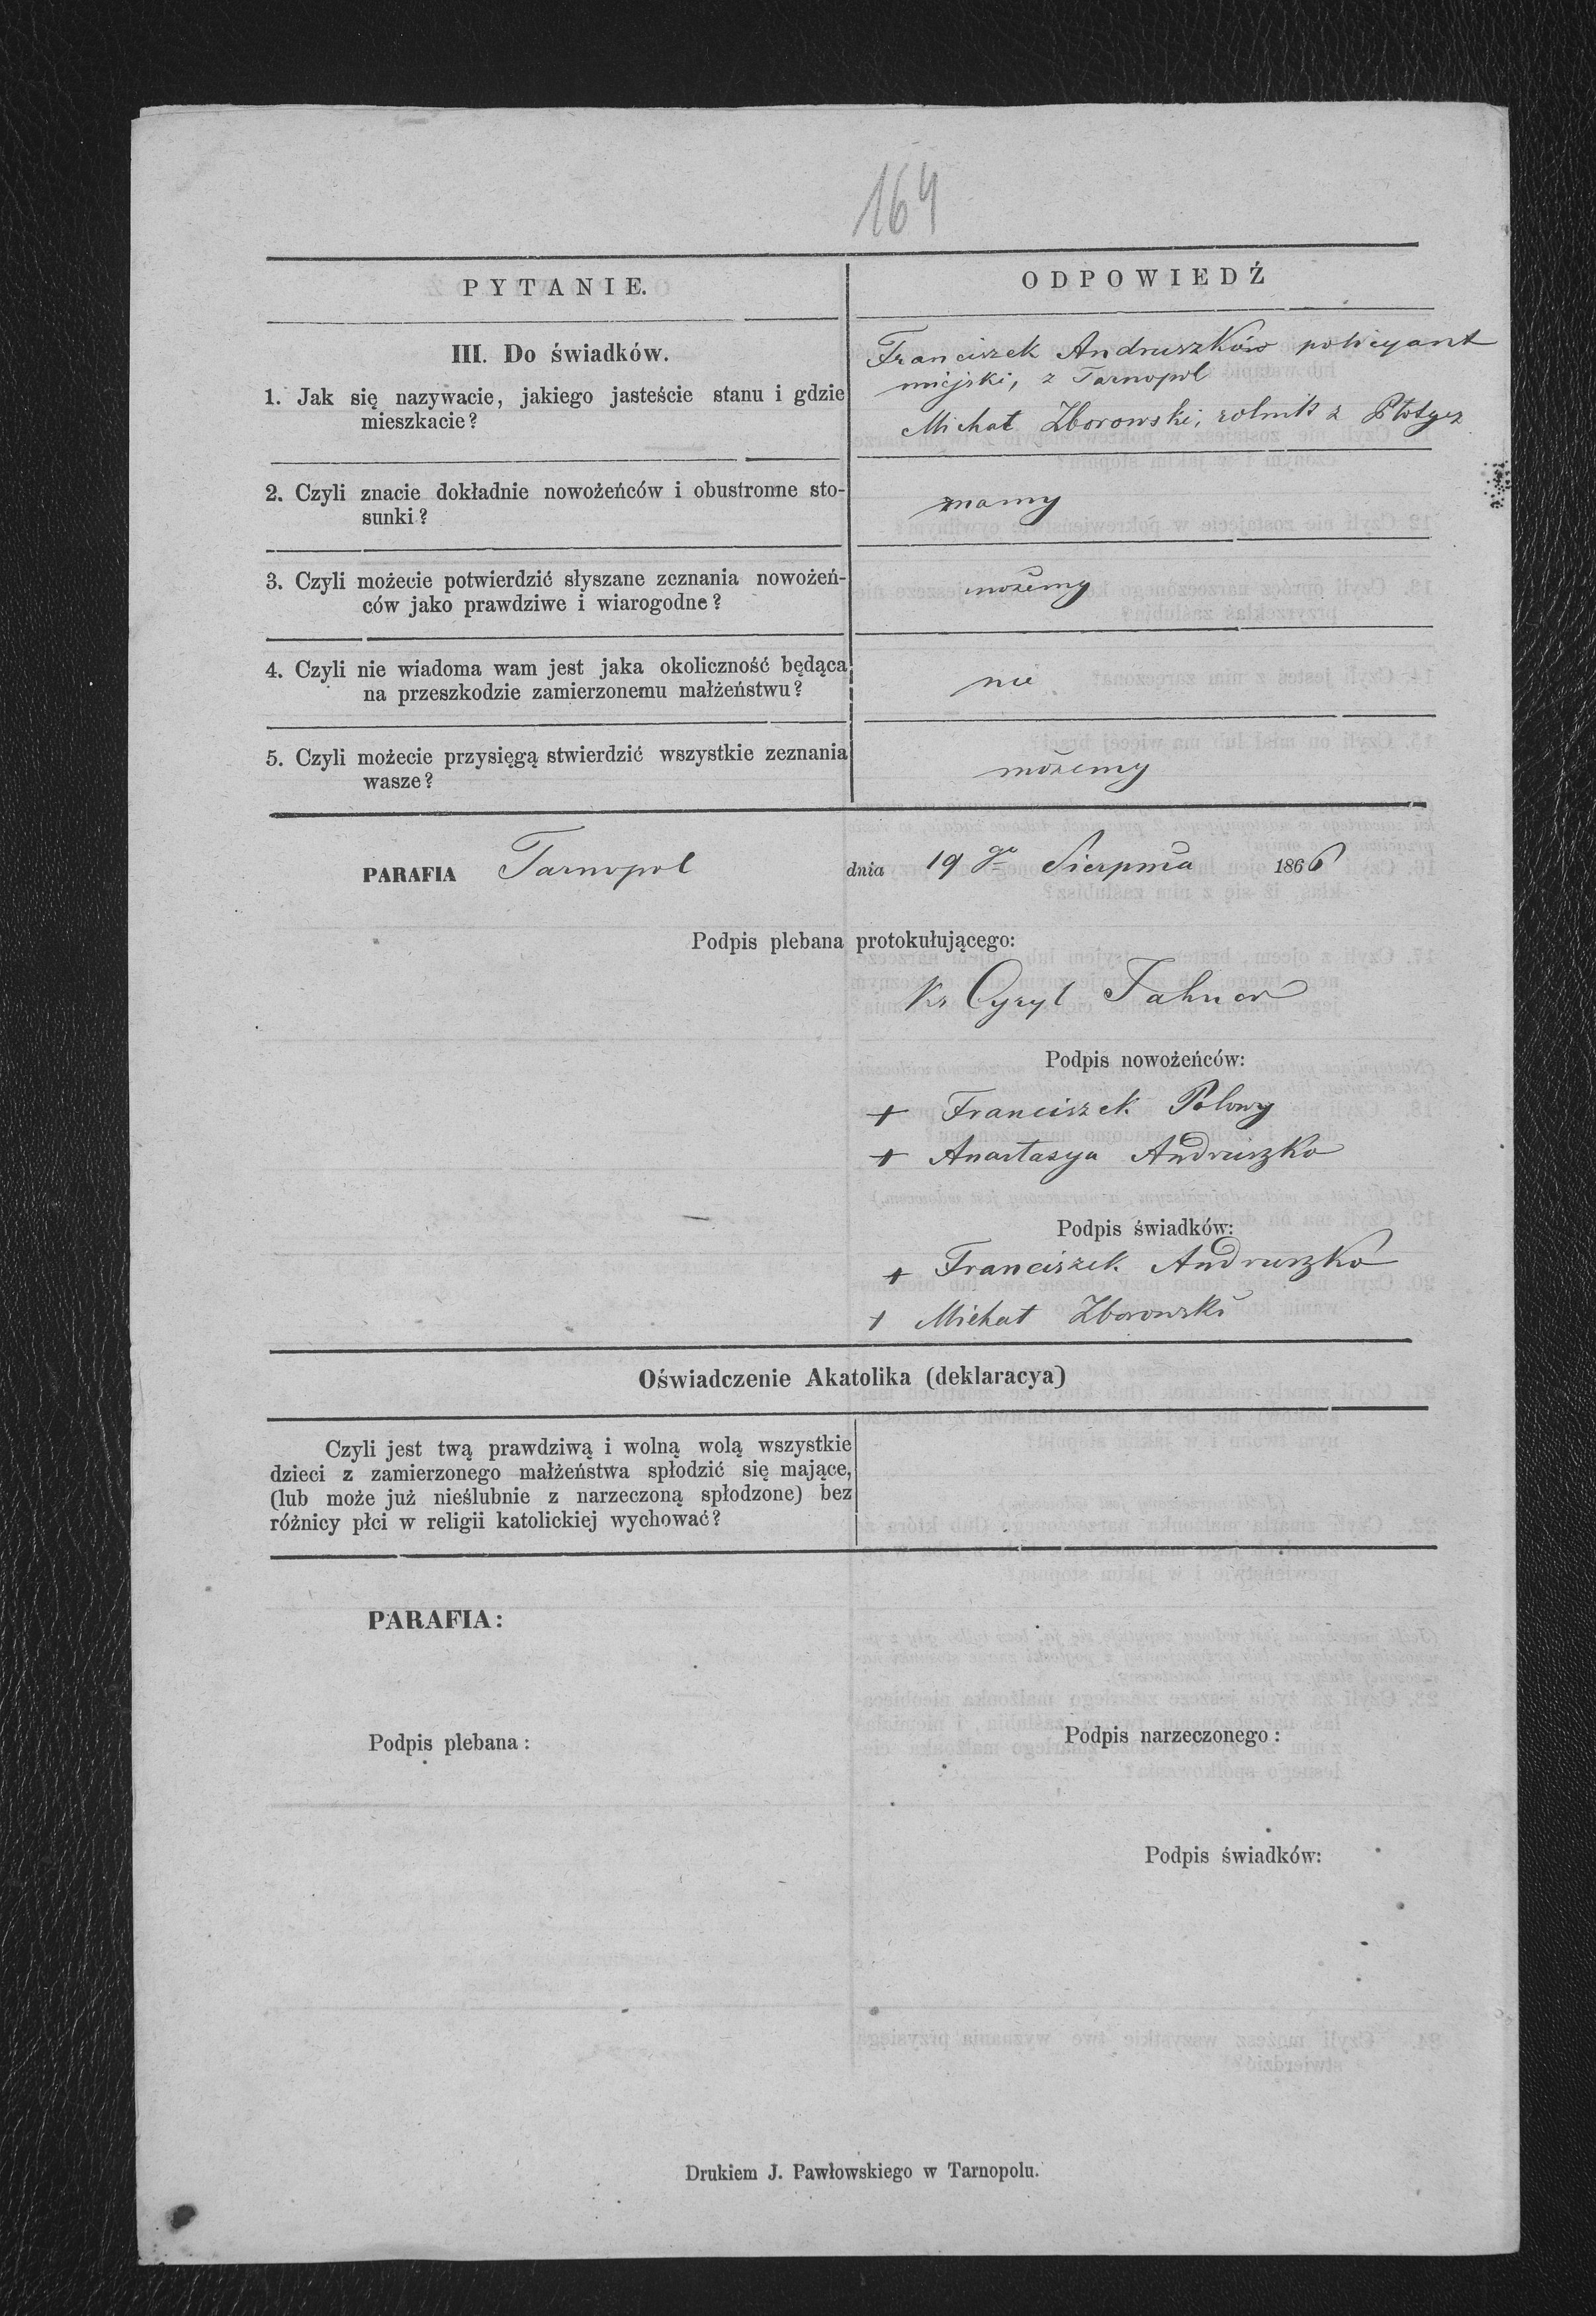 164
PYTANIE.
ODPOWIEDŹ
III. Do świadków.
1. Jak się nazywacie, jakiego jasteście stanu i gdzie
mieszkacie?
Franciszek Andruszków policyant
miejski, z Tarnopol
Michał Zborowski, rolnik z
2. Czyli znacie dokładnie nowożeńców i obustronne sto-
sunki?
znamy
3. Czyli możecie potwierdzić słyszane zeznania nowożeń-
ców jako prawdziwe i wiarogodne?
możemy
4. Czyli nie wiadoma wam jest jaka okoliczność będąca
na przeszkodzie zamierzonemu małżeństwu?
nie
5. Czyli możecie przysięgą stwierdzić wszystkie zeznania
wasze?
możemy
PARAFIA Tarnopol dnia 19go Sierpnia 1866
Podpis plebana protokułującego:
Ks Cyryl
Podpis nowożeńców:
+ Franciszek Polowy
+ Anastasya Andruszko
Podpis świadków:
+ Franciszek Andruszko
+ Michał Zborowski
Oświadczenie Akatolika (deklaracya)
Czyli jest twą prawdziwą i wolną wolą wszystkie
dzieci z zamierzonego małżeństwa spłodzić się mające,
(lub może już nieślubnie z narzeczoną spłodzone) bez
różnicy płci w religii katolickiej wychować?
PARAFIA:
Podpis plebana:
Podpis narzeczonego:
Podpis świadków:
Drukiem J. Pawłowskiego w Tarnopolu.